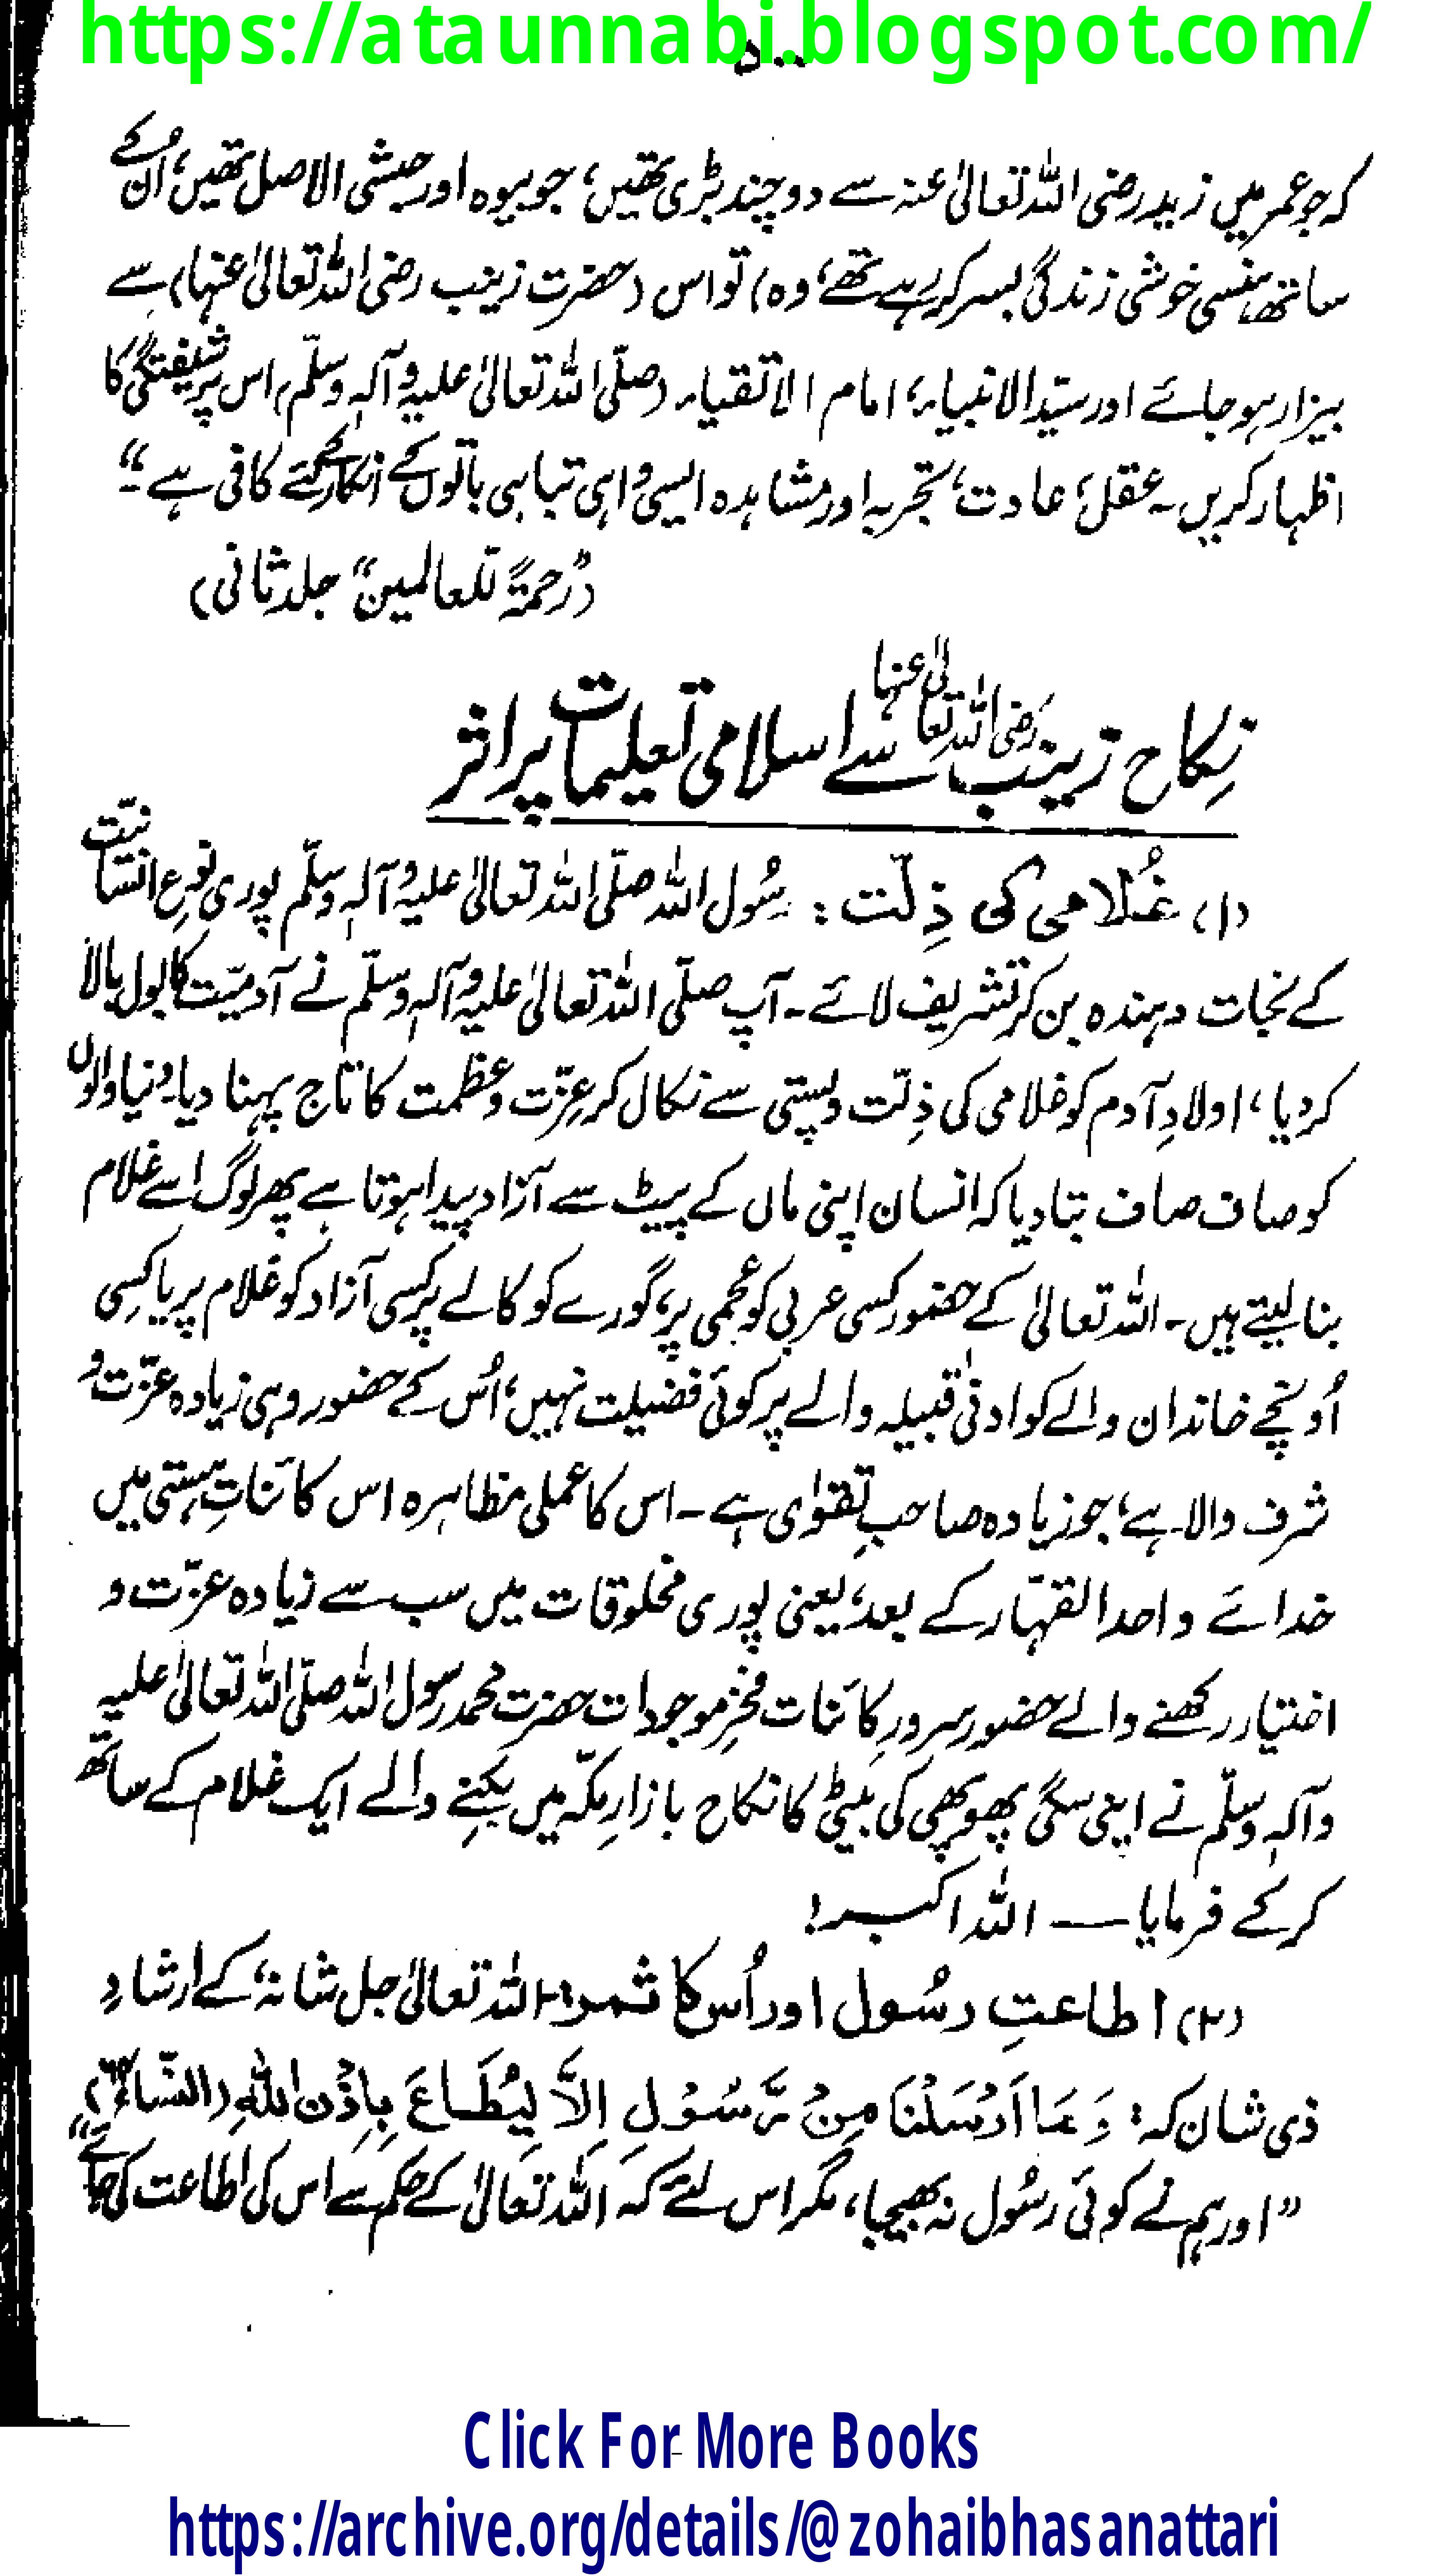 https://ataunnabi.blogspot.com/
۵۰۰
کہ جو عمر میں زید رضی اللہ تعالیٰ عنہ سے دو چند بڑی تھیں، جو بیوہ اور حبشی الاصل تھیں، اُن کے
ساتھ ہنسی خوشی زندگی بسر کر رہے تھے، وہ) تو اس (حضرت زینب رضی اللہ تعالیٰ عنہا) سے
بیزار ہو جائے اور سیّد الانبیاء، امام الاتقیاء (صلّی اللہ تعالیٰ علیہ و آلہٖ وسلّم) اس پر شیفتگی کا
اظہار کریں۔ عقل، عادت، تجربہ اور مشاہدہ ایسی واہی تباہی باتوں کے انکار کے لئے کافی ہے۔“
(”رحمۃً للعالمین“ جلد ثانی)
نِکاح زینب رضی اللہ تعالیٰ عنہا سے اسلامی تعلیمات پر اثر
(۱) غُلامی کی ذِلّت : رسُول اللہ صلّی اللہ تعالیٰ علیہ و آلہٖ وسلّم پوری نوعِ انسانیّت
کے نجات دہندہ بن کر تشریف لائے۔ آپ صلّی اللہ تعالیٰ علیہ و آلہٖ وسلّم نے آدمیّت کا بول بالا
کر دیا، اولادِ آدم کو غلامی کی ذِلّت و پستی سے نکال کر عِزّت و عظمت کا تاج پہنا دیا۔ دُنیا والوں
کو صاف صاف بتا دیا کہ انسان اپنی ماں کے پیٹ سے آزاد پیدا ہوتا ہے پھر لوگ اسے غلام
بنا لیتے ہیں۔ اللہ تعالیٰ کے حضور کسی عربی کو عجمی پر، گورے کو کالے پر کسی آزاد کو غلام پر یا کسِی
اُونچے خاندان والے کو ادنیٰ قبیلہ والے پر کوئی فضیلت نہیں، اُس کے حضور وہی زیادہ عزّت و
شرف والا ہے، جو زیادہ صاحبِ تقوٰی ہے۔ اس کا عملی مظاہرہ اس کائناتِ ہستی میں
خدائے واحد القہّار کے بعد، یعنی پوری مخلوقات میں سب سے زیادہ عزّت و
اختیار رکھنے والے حضور سرورِ کائنات فخرِ موجودات حضرت محمد رسول اللہ صلّی اللہ تعالیٰ علیہ
و آلہٖ وسلّم نے اپنی سگی پھوپھی کی بیٹی کا نکاح بازارِ مکّہ میں بِکنے والے ایک غلام کے ساتھ
کر کے فرمایا — اللہ اکبر!
(۲) اطاعتِ رسُول اور اُس کا ثمر: اللہ تعالیٰ جل شانہٗ کے ارشادِ
ذی شان کہ: وَمَا اَرْسَلْنَا مِنْ رَّسُوْلٍ اِلَّا لِيُطَاعَ بِاِذْنِ اللہِ (النّساء ۶۴)
”اور ہم نے کوئی رسُول نہ بھیجا، مگر اس لئے کہ اللہ تعالیٰ کے حکم سے اس کی اطاعت کی جائے“
Click For More Books
https://archive.org/details/@zohaibhasanattari